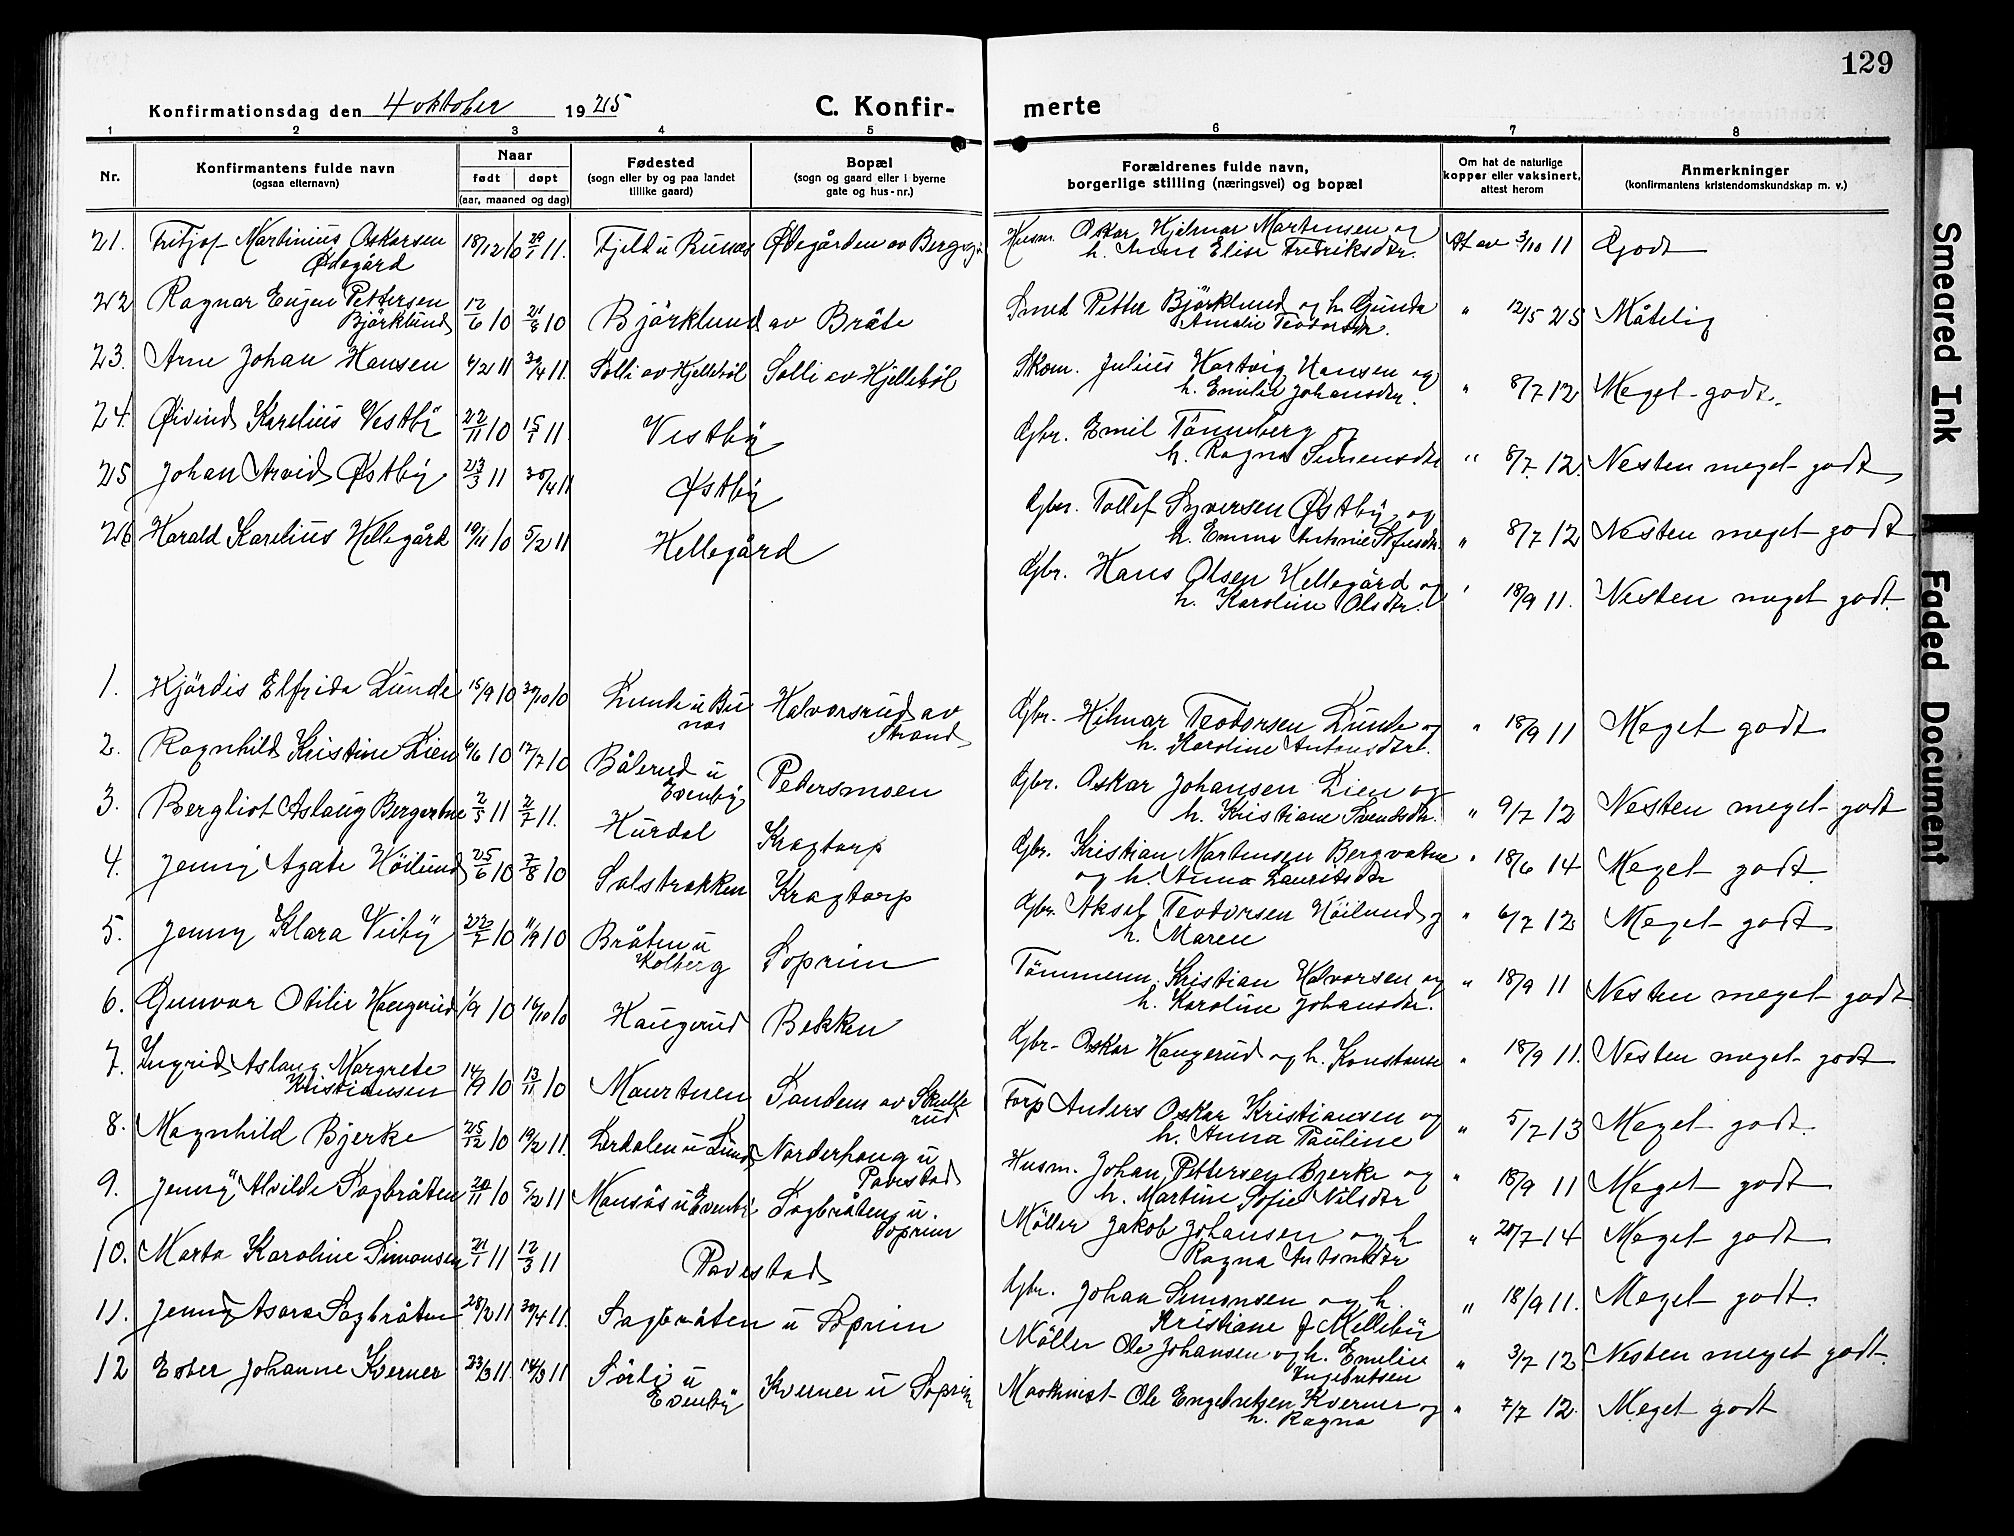 129
Konfirmationsdag den 4 oktober 1925
C. Konfirmerte
1 2 3 4 5 6 7 8
Nr.
Konfirmantens fulde navn
(ogsaa efternavn)
Naar
født døpt
(aar, maaned og dag)
Fødested
(sogn eller by og paa landet
tillike gaard)
Bopæl
(sogn og gaard eller i byerne
gate og hus-nr.)
Forældrenes fulde navn,
borgerlige stilling (næringsvei) og bopæl
Om hat de naturlige
kopper eller vaksinert,
attest herom
Anmerkninger
(konfirmantens kristendomskundskap m. v.)
21. Fritjof Martinius Oskarsen 18/12 10 29/1 11. Fjeld u Bunæs Ødegården av Bergsj
Ødegård
Husm. Oskar Hjelmar Martinsen og
h. Anne Elise Fredriksdtr. At av 3/10 11 Godt
22 Ragnar Eugen Pettersen 12/6 10 21/8 10 Björklund av Bråte
Björklund
Smed Petter Björklund og h. Gunda
Amalie Teodorsdtr. " 12/5 25 Måtelig
23. Arne Johan Hansen 6/2 11 30/4 11. Solli av Hjellebøl Solli av Hjellebøl
Skom. Julius Hartvig Hansen og
h. Emilie Johansdtr. " 8/7 12 Meget godt.
24. Øivind Karelius Vestby 22/11 10 15/1 11. Vestby
Gbr. Emil Tönneberg og
h. Ragna Simensdtr " 8/7 12. Nesten meget godt
25 Johan Arvid Østby 23/3 11 30/4 11 Østby
Gbr. Tollef Syversen Østby og
h. Emma Antonie " 8/7 12 Nesten meget godt
26 Harald Karelius Hellegård 19/11 10 5/2 11 Hellegård
Gbr. Hans Olsen Hellegård og
h. Karoline Olsdtr. " 18/9 11. Nesten meget godt.
1. Hjördis Elfrida Lunde 15/9 10 30/10 10 Lunde u Bu Halvorsrud av
næs Strand
Gbr. Hilmar Teodorsen Lunde og
h. Karoline Antonsdtr. " 18/9 11 Meget godt
2. Ragnhild Kristine Lien 6/6 10 17/7 10 Bålerud u Pedersmoen
Evenby
Gbr. Oskar Johansen Lien og
h. Kristiane Svendsdtr. " 9/7 12 Nesten meget godt
3. Bergliot Aslaug 2/5 11 2/7 11. Hurdal Kragtorp
Gbr. Kristian Martinsen Bergvatne
og h. Anna Lauritsdtr " 18/6 14 Meget godt.
4. Jenny Agate Höilund 25/6 10 7/8 10 Salstrakken Kragtorp
Gbr. Aksel Teodorsen Höilund og
h. Maren " 6/7 12 Meget godt
5. Jenny Klara Viby 22/7 10 11/9 10 Bråten u Soprim
Kolberg
Tömmerm. Kristian Halvorsen og
h. Karoline Johansdtr. " 18/9 11 Nesten meget godt
6. Gunvor Otilie Haugerud 1/9 10 16/10 10 Haugerud Bekken
Gbr. Oskar Haugerud og h. Konstanse " 18/9 11. Nesten meget godt
7. Ingrid Aslaug Margrete 14/9 10 13/11 10 Maurtuen Sandem av Skulle
Kristiansen rud
Torp Anders Oskar Kristiansen og
h. Anna Pauline " 5/7 13 Meget godt.
8. Magnhild Bjerke 25/12 10 19/2 11. Lerdalen u Lund Norderhaug u
Pavestad
Husm. Johan Pettersen Bjerke og
h. Martine Sofie Nilsdtr " 18/9 11 Meget godt
9. Jenny Alvilde Sagbråten 20/11 10 5/2 11 Monsås u Evenby Sagbråten u.
Soprim
Möller Jakob Johansen og h
Ragna Antonsdtr " 20/7 14 Meget godt
10. Marta Karoline Simonsen 21/1 11 12/3 11 Pavestad
Gbr. Johan Simonsen og h.
Kristiane f Melleby " 18/9 11. Meget godt.
11. Jenny Asora Sagbråten 28/2 11 30/4 11. Sagbråten u Soprim
Möller Ole Johansen og h. Emilie
Ingebretsen " 3/7 12 Nesten meget godt.
12 Ester Johanne Kverner 23/3 11. 14/3 11 Sörli u Kverner u Soprim
Evenby
Maskinist Ole Engebretsen Kverner og
h. Ragna " 7/7 12. Meget godt
Smeared Ink
Faded Document